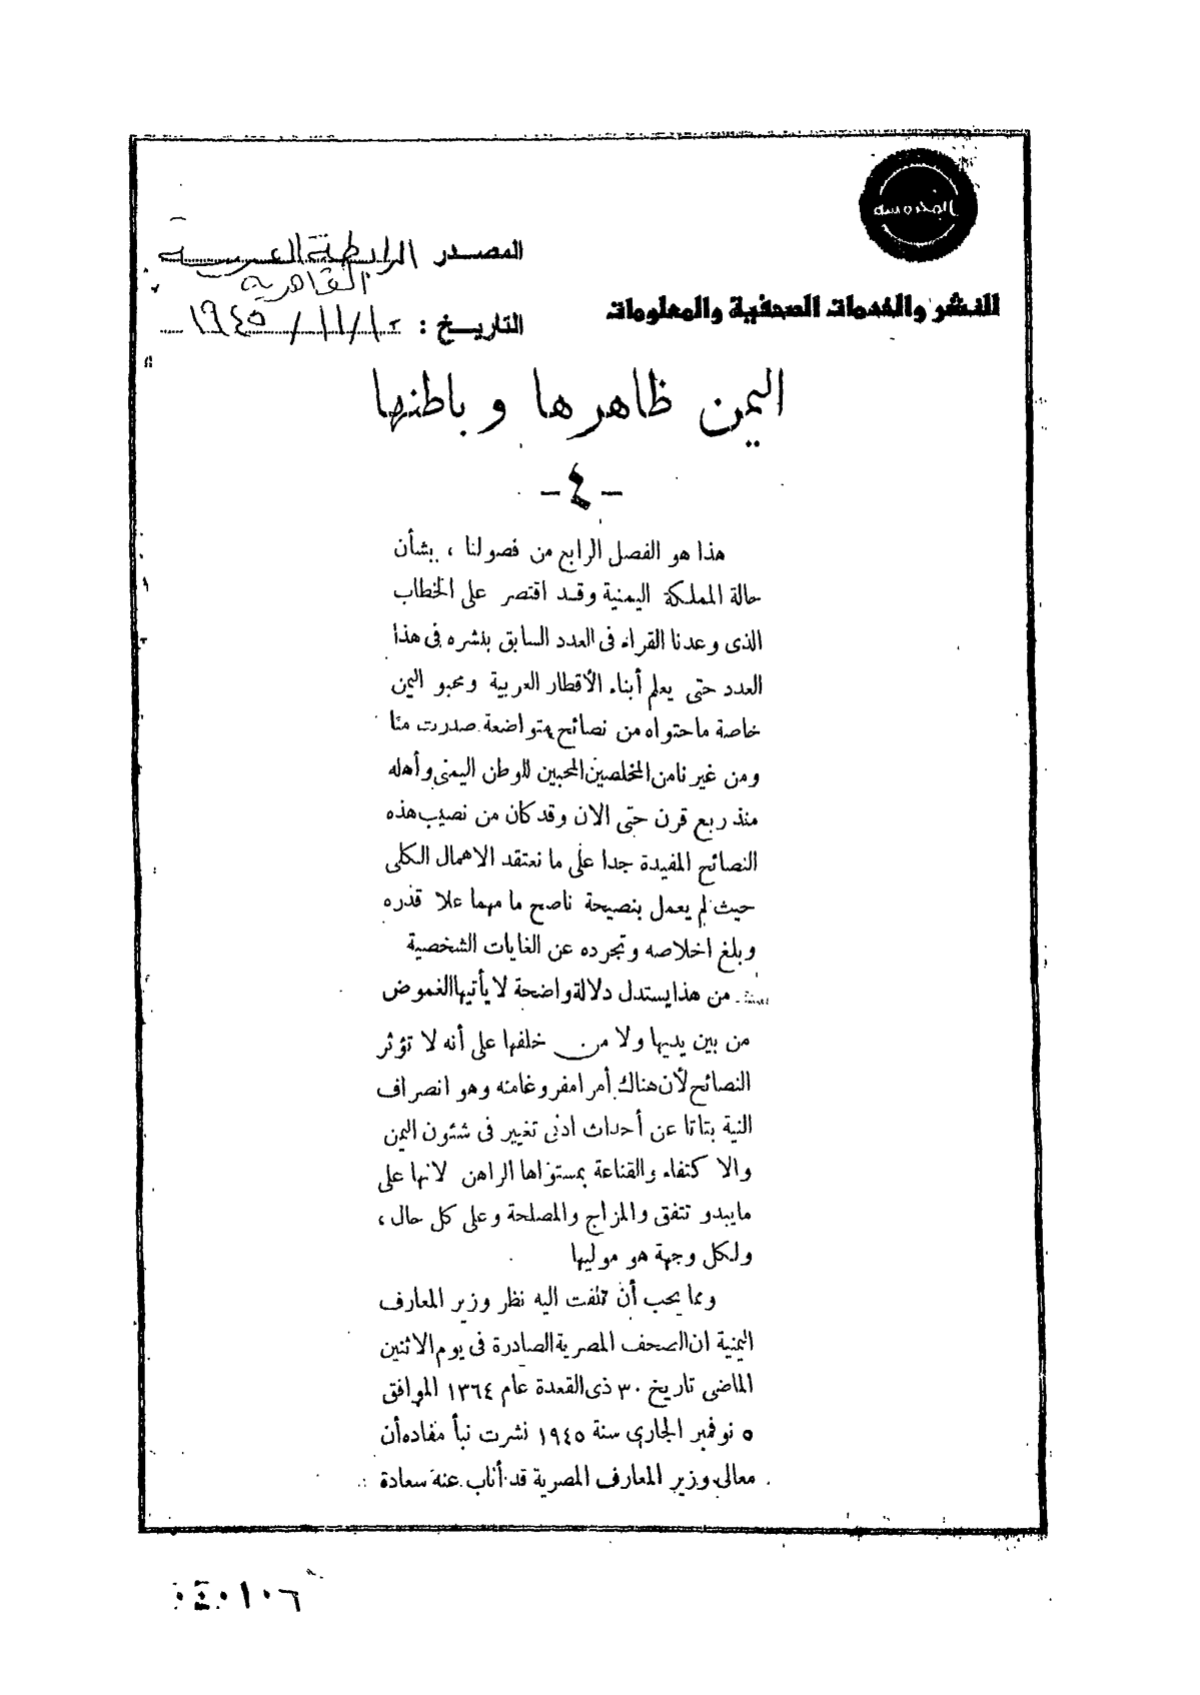 المحروسة
للنشر والخدمات الصحفية والمعلومات
المصدر الرابطة العربية
القاهرية
التاريخ : ١٩٤٥/١١/١٠
اليمن ظاهرها وباطنها
- ٤ -
هذا هو الفصل الرابع من فصولنا ، بشأن
حالة المملكة اليمنية وقد اقتصر على الخطاب
الذى وعدنا القراء فى العدد السابق بنشره فى هذا
العدد حتى يعلم أبناء الأقطار العربية ومحبو اليمن
خاصة ما حتواه من نصائح متواضعة صدرت منا
ومن غيرنا من المخلصين المحبين للوطن اليمنى وأهله
منذ ربع قرن حتى الان وقد كان من نصيب هذه
النصائح المفيدة جدا على ما نعتقد الاهمال الكلى
حيث لم يعمل بنصيحة ناصح ما مهما علا قدره
وبلغ اخلاصه وتجرده عن الغايات الشخصية
من هذا يستدل دلالة واضحة لا يأتيها الغموض
من بين يديها ولا من خلفها على أنه لا تؤثر
النصائح لأن هناك أمرا مفروغا منه وهو انصراف
النية بتاتا عن أحداث ادنى تغيير فى شئون اليمن
والا كتفاء والقناعة بمستواها الراهن لانها على
مايبدو تتفق والمزاج والمصلحة وعلى كل حال ،
ولكل وجهة هو موليها
ومما يجب أن نلفت اليه نظر وزير المعارف
اليمنية ان الصحف المصرية الصادرة فى يوم الاثنين
الماضى تاريخ ٣٠ ذى القعدة عام ١٣٦٤ الموافق
٥ نوفمبر الجارى سنة ١٩٤٥ نشرت نبأ مفاده أن
معالى وزير المعارف المصرية قد أناب عنه سعادة
٠٤٠١٠٦